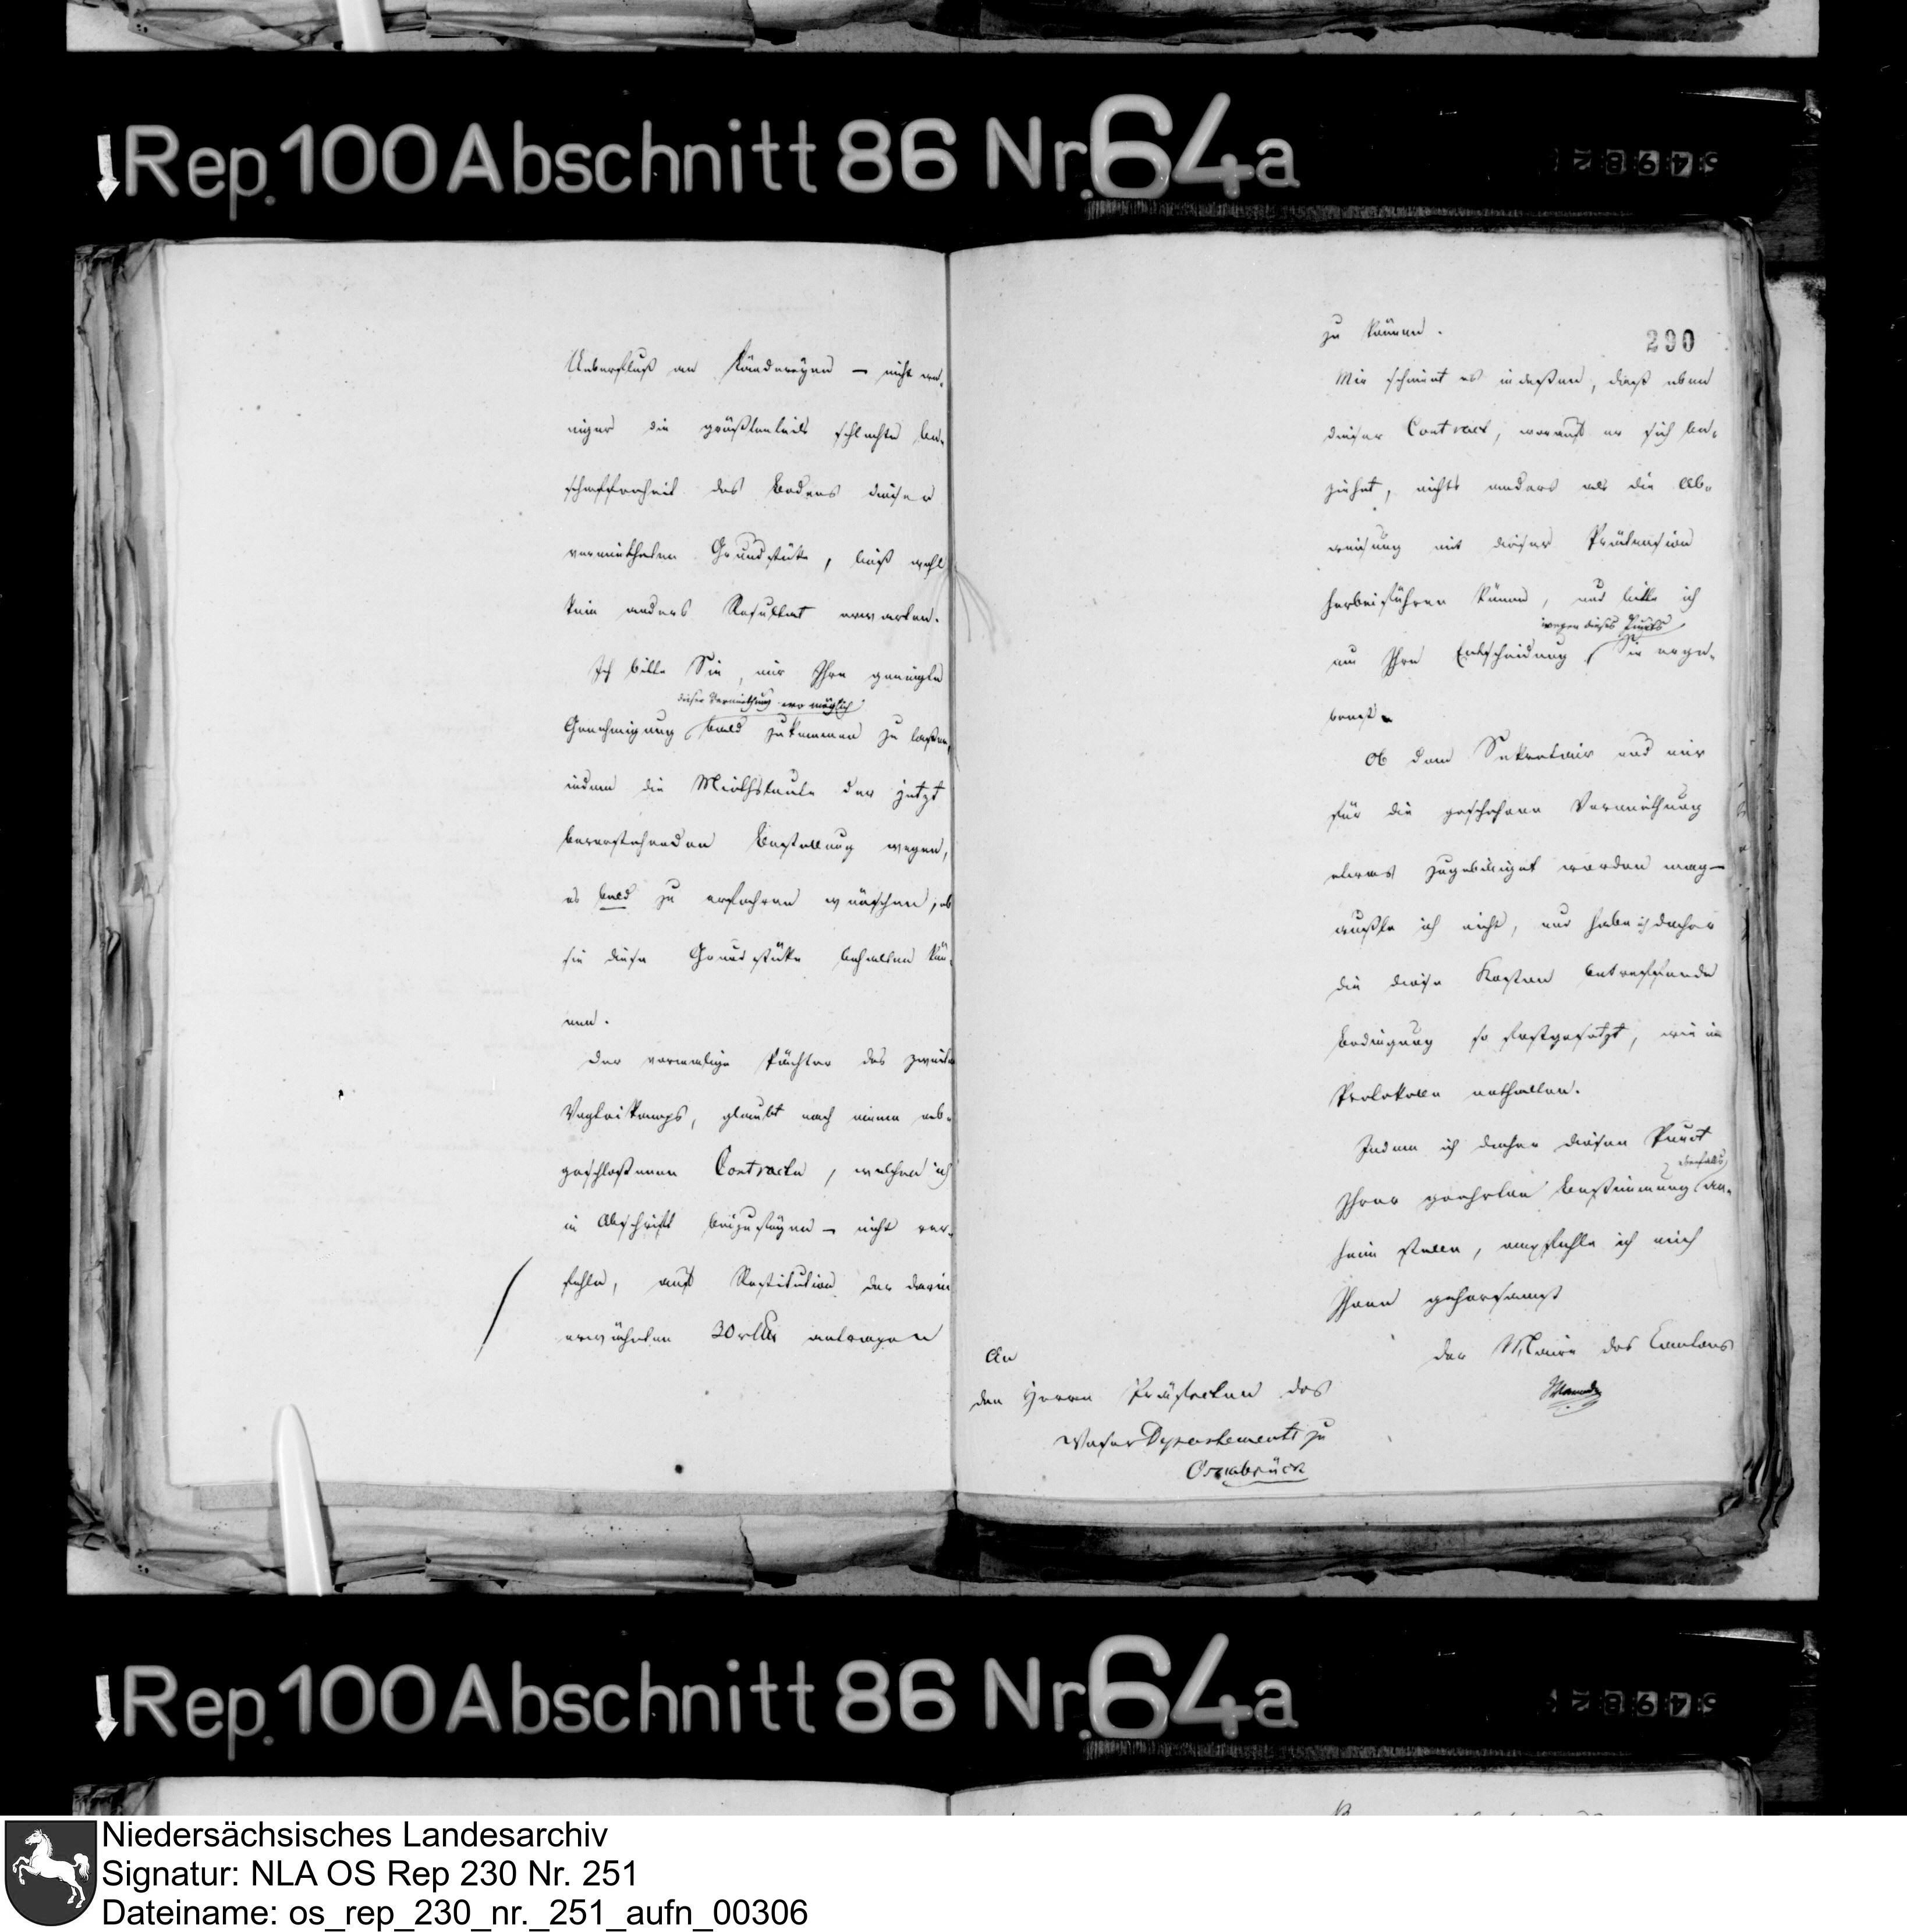 Rep. 100 Abschnitt 86 Nr. 64a
Ueberfluß an Ländereyen — nicht we-
niger die größtentheils schlechte Be-
schaffenheit des Bodens dieser
vermietheten Grundstüke, ließ wohl
kein anders Resultat erwarten.
Ich bitte Sie, mir Ihre geneigte
dieser Vermiethung wo möglich
Genehmigung bald zukommen zu laßen,
indem die Miethsleute der jetzt
bevorstehenden Bestellung wegen,
es bald zu erfahren wünschen, ob
sie diese Grundstüke behalten kön-
nen.
Der vormalige Pächter des zweiten
Vogteikamps, glaubt nach einem ab-
geschloßenen Contracte, welchen ich
in Abschrift beizufügen — nicht ver-
fehle, auf Restitution der darin
erwähnten 30 rthlr antragen
290
zu können.
Mir scheint es indeßen, daß eben
dieser Contract, worauf er sich be-
ziehet, nichts anders als die Ab-
weisung mit dieser Prätension
herbeiführen könne, und bitte ich
wegen dieses Puncts
um Ihre Entscheidung Sie erge-
benst.
Ob dem Sekretair und mir
für die geschehene Vermiethung
etwas zugebilliget werden mag —
wußte ich nicht, und habe ich daher
die diese Kosten betreffende
Bedingung so festgesetzt, wie im
Protokolle enthalten.
Indem ich daher diesen Punct
Ihrer geehrten Bestimmung an-
heim stelle, empfehle ich mich
Ihnen gehorsamst
Der Maire des Cantons
An
den Herrn Präfecten des
Weser Departements zu
Osnabrück
Rep. 100 Abschnitt 86 Nr. 64a
Niedersächsisches Landesarchiv
Signatur: NLA OS Rep 230 Nr. 251
Dateiname: os_rep_230_nr._251_aufn_00306